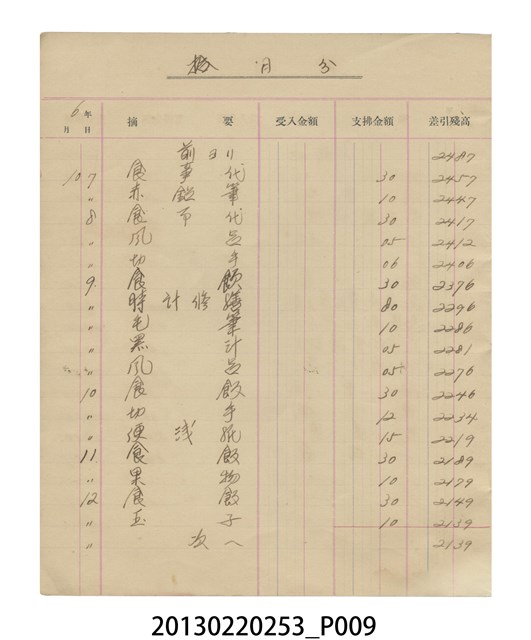 月分
6年
月 日 摘 要 受入金額 支拂金額 差引残高
前ヨリ 2487
10 7 食事代 30 2457
〃 赤鉛筆 10 2447
8 食事代 30 2417
〃 風呂 05 2412
〃 切手 06 2406
9 食飯 30 2376
〃 時計修繕 80 2296
〃 毛筆 10 2286
〃 黒汁 05 2281
〃 風呂 05 2276
10 食飯 30 2246
〃 切手 12 2234
〃 便浅紙 15 2219
11 食飯 30 2189
〃 果物 10 2179
12 食飯 30 2149
〃 玉子 10 2139
〃 次へ 2139
20130220253_P009